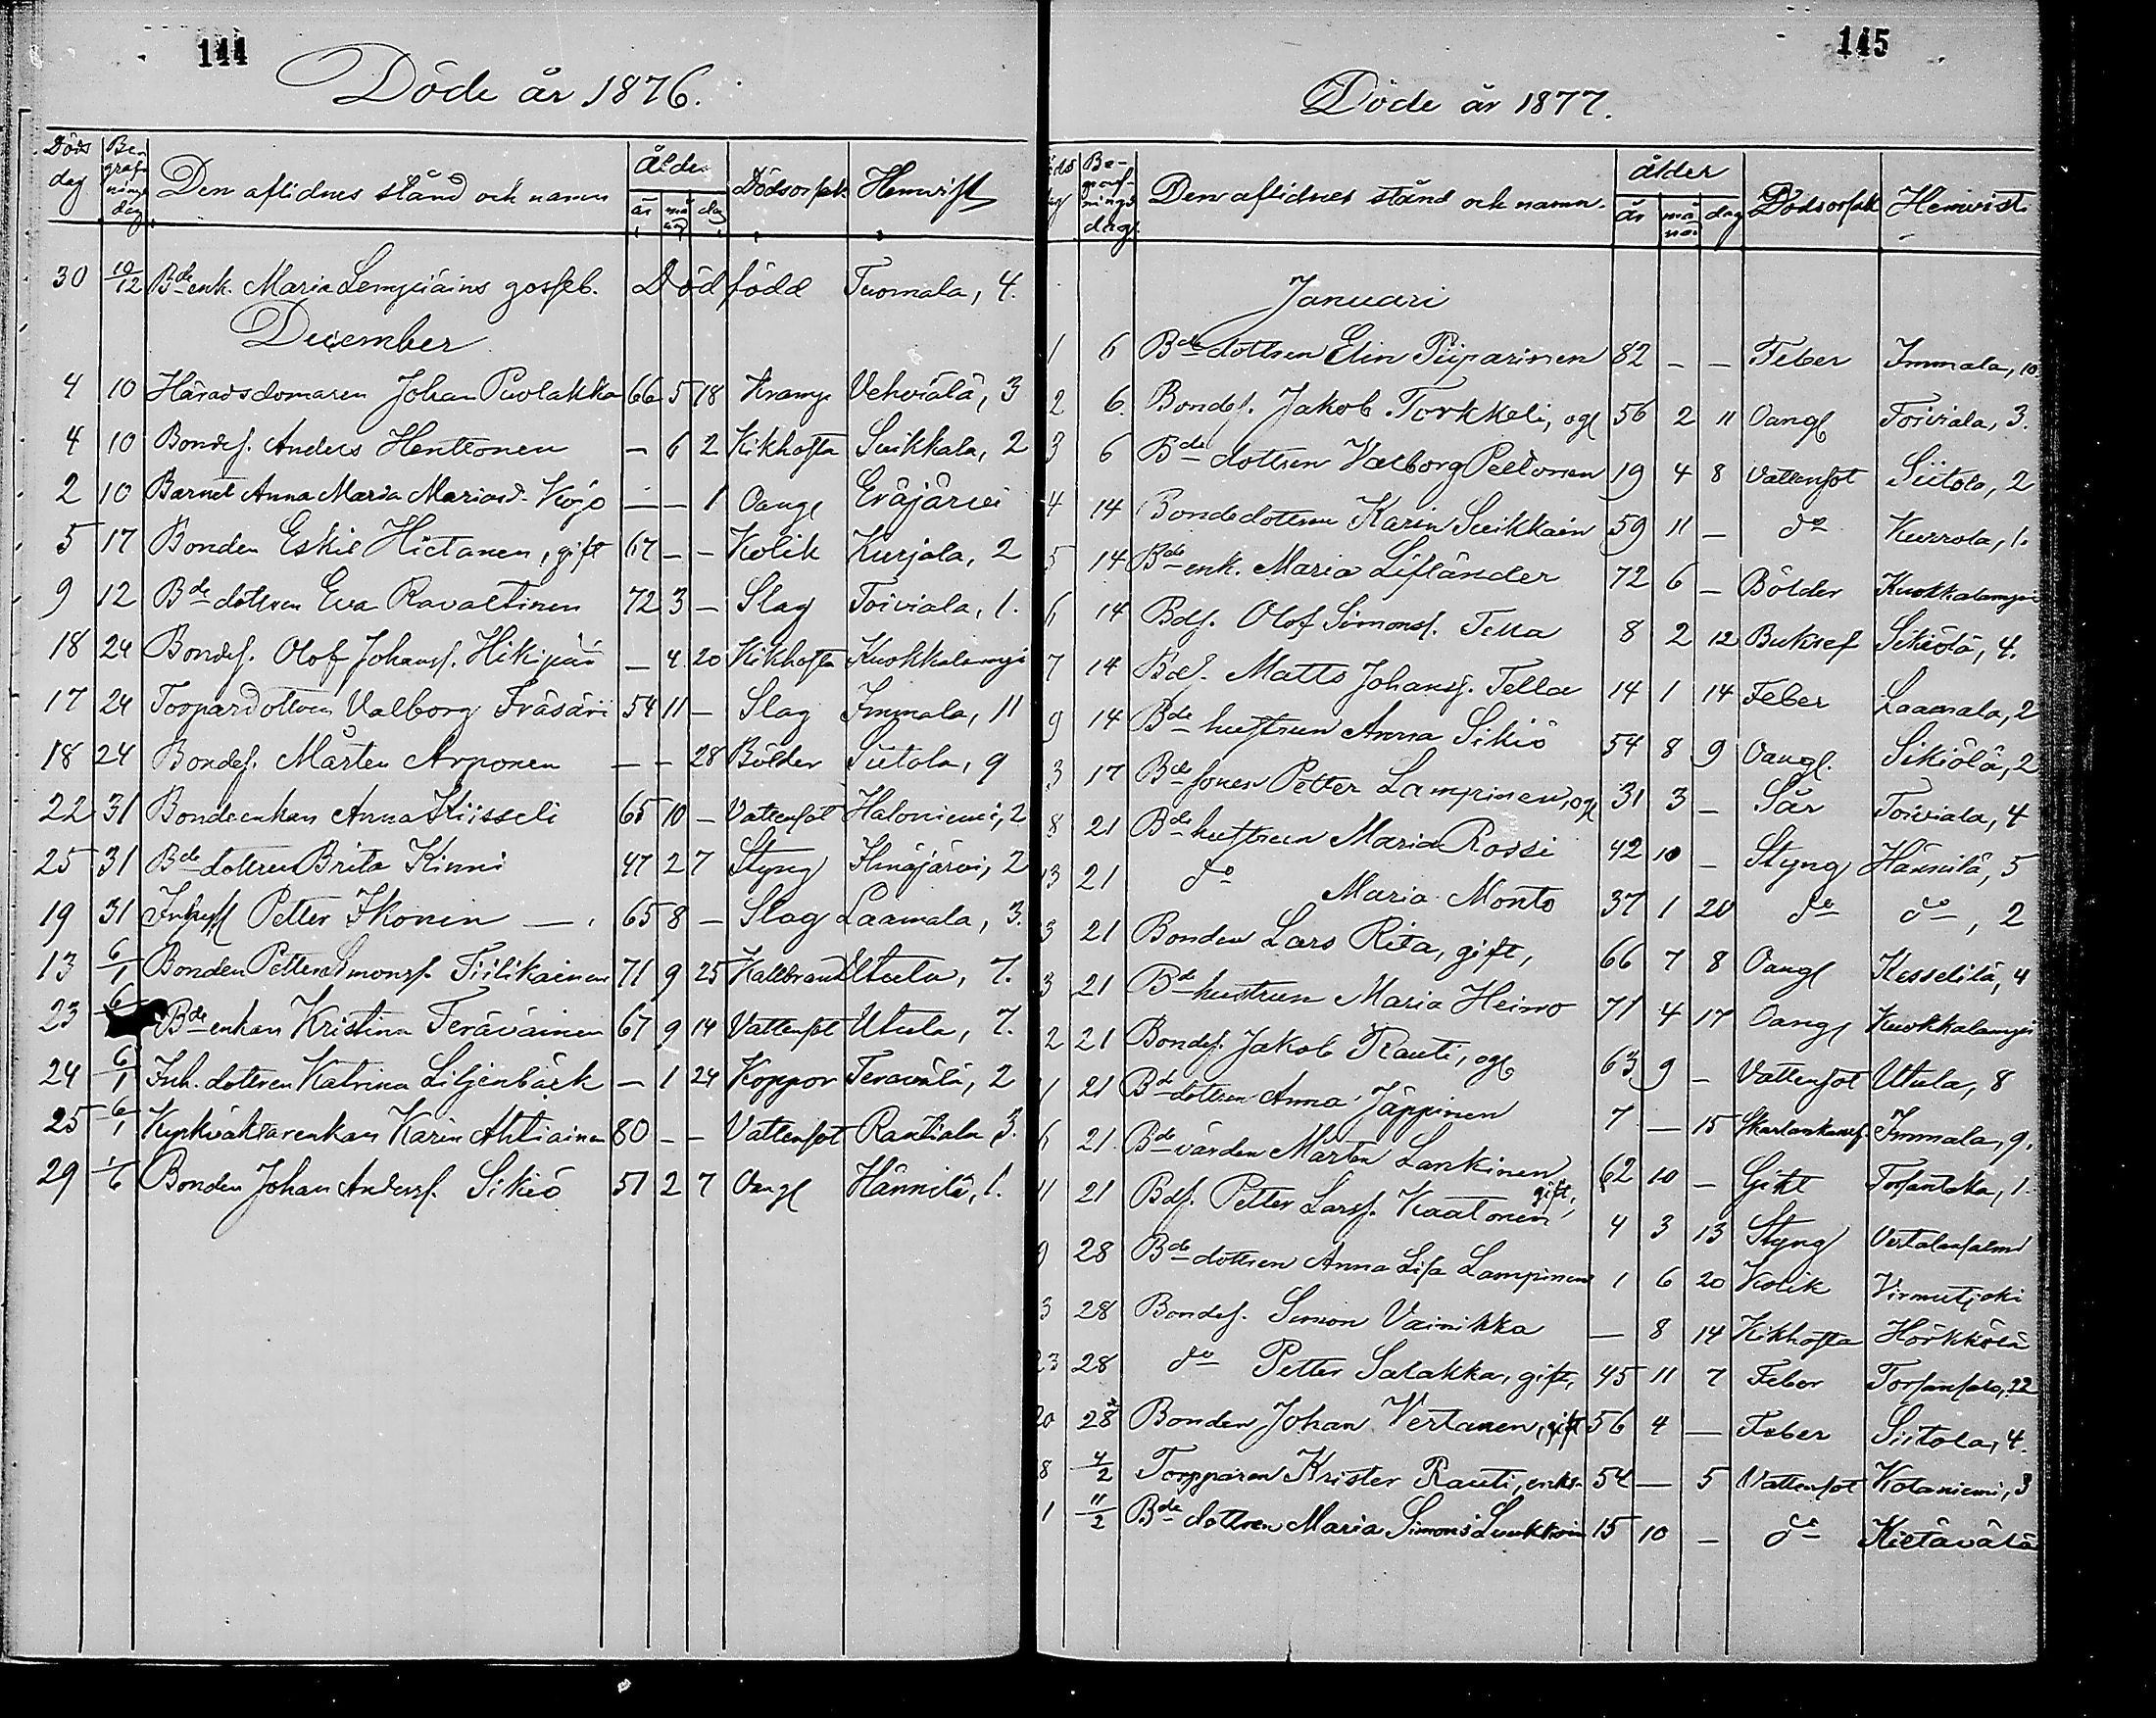 144
Döde år 1876.
Döds dag Begrafnings dag Den aflidnes stånd och namn ålder år månad dag Dödsorsak Hemvist
30 10/12 Bde enk. Maria Lempiäins gosseb. Dödfödd Tuomala, 4.
December
4 10 Häradsdomaren Johan Puolakka 66 5 18 Kramp Vehviälä, 3
4 10 Bondes. Anders Henttonen — 6 2 Kikhosta Suikkala, 2
2 10 Barnet Anna Maria Mariasd. — — 1 Oangf Eräjärvi
5 17 Bonden Eskil Hietanen, gift 67 — — Kolik Kurjala, 2
9 12 Bde dottren Eva Ravattinen 72 3 — Slag Toiviala, 1.
18 24 Bondes. Olof Johanss. Hikipää — 4 20 Kikhosta Kuokkalampi
17 24 Torpardottren Valborg Fräsäri 54 11 — Slag Immala, 11
18 24 Bondes. Mårten Arponen — — 28 Bölder Siitola, 9
22 31 Bondeenkan Anna Kiisseli 65 10 — Vattensot Haloniemi, 2
25 31 Bde dottren Brita Kinni 47 2 7 Styng Ilmajärvi, 2
19 31 Petter Ikonen — 65 8 — Slag Laamala, 3.
13 6/1 Bonden Petter Simonss. Tiilikainen 71 9 25 Kallbrand Utula, 7.
23 6 Bde enkan Kristina Teräväinen 67 9 14 Vattensot Utula, 7.
24 6/1 Inh. dottren Katrina Liljenbäck — 1 24 Koppor Teravälä, 2
25 6/1 Kyrkväktarenkan Karin Ahtiainen 80 — — Vattensot Rautiala 3.
29 1/6 Bonden Johan Anderss. Sikiö 51 2 7 Oangf Hännilä, 1.
145
Döde år 1877.
Begrafnings dag Den aflidnes stånd och namn. ålder år månad dag Dödsorsak Hemvist
Januari
1 6 Bde dottren Elin Piiparinen 82 — — Feber Immala, 10.
2 6. Bondes. Jakob Torkkeli, ogf 56 2 11 Oangf Toiviala, 3.
3 6 Bde dottren Valborg Peltonen 19 4 8 Vattensot Siitola, 2
4 14 Bondedottren Karin Suikkain 59 11 — do Kurrola, 1.
5 14 Bde enk. Maria Lifländer 72 6 — Bölder Kuokkalampi
6 14 Bds. Olof Simonss. Tella 8 2 12 Bukref Sikiölä, 4.
7 14 Bds. Matts Johanss. Tella 14 1 14 Feber Laamala, 2
9 14 Bde hustrun Anna Sikiö 54 8 9 Oangf. Sikiölä, 2
3 17 Bde sonen Petter Lampinen, ogf 31 3 — Sår Toiviala, 4
8 21 Bde hustrun Maria Rossi 42 10 — Styng Hännilä, 5
13 21 do Maria Monto 37 1 20 do do, 2
3 21 Bonden Lars Rita, gift, 66 7 8 Oangf Kesselilä, 4
3 21 Bde hustrun Maria Heimo 71 4 17 Oangf Kuokkalampi
2 21 Bondes. Jakob Rauti, ogf 63 9 — Vattensot Utula, 8
1 21 Bde dottren Anna Jäppinen 7 — 15 Skarlakansf. Immala, 9.
6 21. Bde värden Mårten Lankinen gift, 62 10 — Gikt Torsantaka, 1.
11 21 Bds. Petter Larss. Kaatonen 4 3 13 Styng
9 28 Bde dottren Anna Lisa Lampinen 1 6 20 Kolik Virmutjoki
3 28 Bondes. Simon Vainikka — 8 14 Kikhosta Hörkkölä
23 28 do Petter Salakka, gift, 45 11 7 Feber Torsansalo, 22
20 28 Bonden Johan Vertanen, gift 56 4 — Feber Siitola, 4.
8 4/2 Torpparen Krister Rauti, enkl. 54 — 5 Vattensot Kotaniemi, 3
1 11/2 Bde dottren Maria Simonsd Luukkoin 15 10 — do Kietävälä